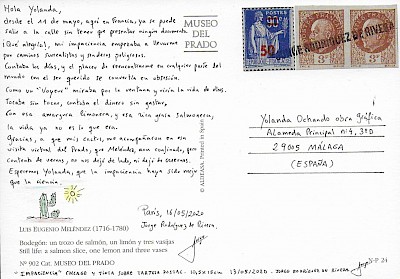 Hola Yolanda,
desde el 11 de mayo, aquí en Francia, ya se puede
salir a la calle sin tener que presentar ningún documento
¡Qué alegría!, mi impaciencia empezaba a llevarme
por caminos surrealistas y senderos peligrosos.
Contaba los días, y el placer de reencontrarme en cualquier parte del
mundo con el ser querido se convertía en obsesión.
Como un "Voyeur" miraba por la ventana y vivía la vida de otros.
Tocaba sin tocar, contaba el dinero sin gastar,
Con esa amargura limonera, y esa rica gracia salmonera,
la vida ya no es lo que era.
Gracias, a que mis castos, me acompañaron en esa
visita virtual del Prado, que Meléndez, aun confinado, pero
contento de vernos, no nos dejó de lado, ni dejó de cenarnos.
Esperemos Yolanda, que la impaciencia haya sido mejor
que la ciencia.
París, 16/05/2020
Jorge Rodríguez de Rivera
LUIS EUGENIO MELÉNDEZ (1716-1780)
Bodegón: un trozo de salmón, un limón y tres vasijas
Still life: a salmon slice, one lemon and three vases
Nº 902 Cat. MUSEO DEL PRADO
"IMPACIENCIA" ENCAGE Y TINTA SOBRE TARJETA POSTAL. 10,5x15cm 13/05/2020. JORGE RODRIGUEZ DE RIVERA
MUSEO
DEL
PRADO
© ALDEASA. Printed in Spain
90
50
3F
3F
RODRIGUEZ DE RIVERA
Yolanda Ochando obra gráfica
Alameda Principal nº4, 3ºD
29005 MÁLAGA
(ESPAÑA)
N-P 24